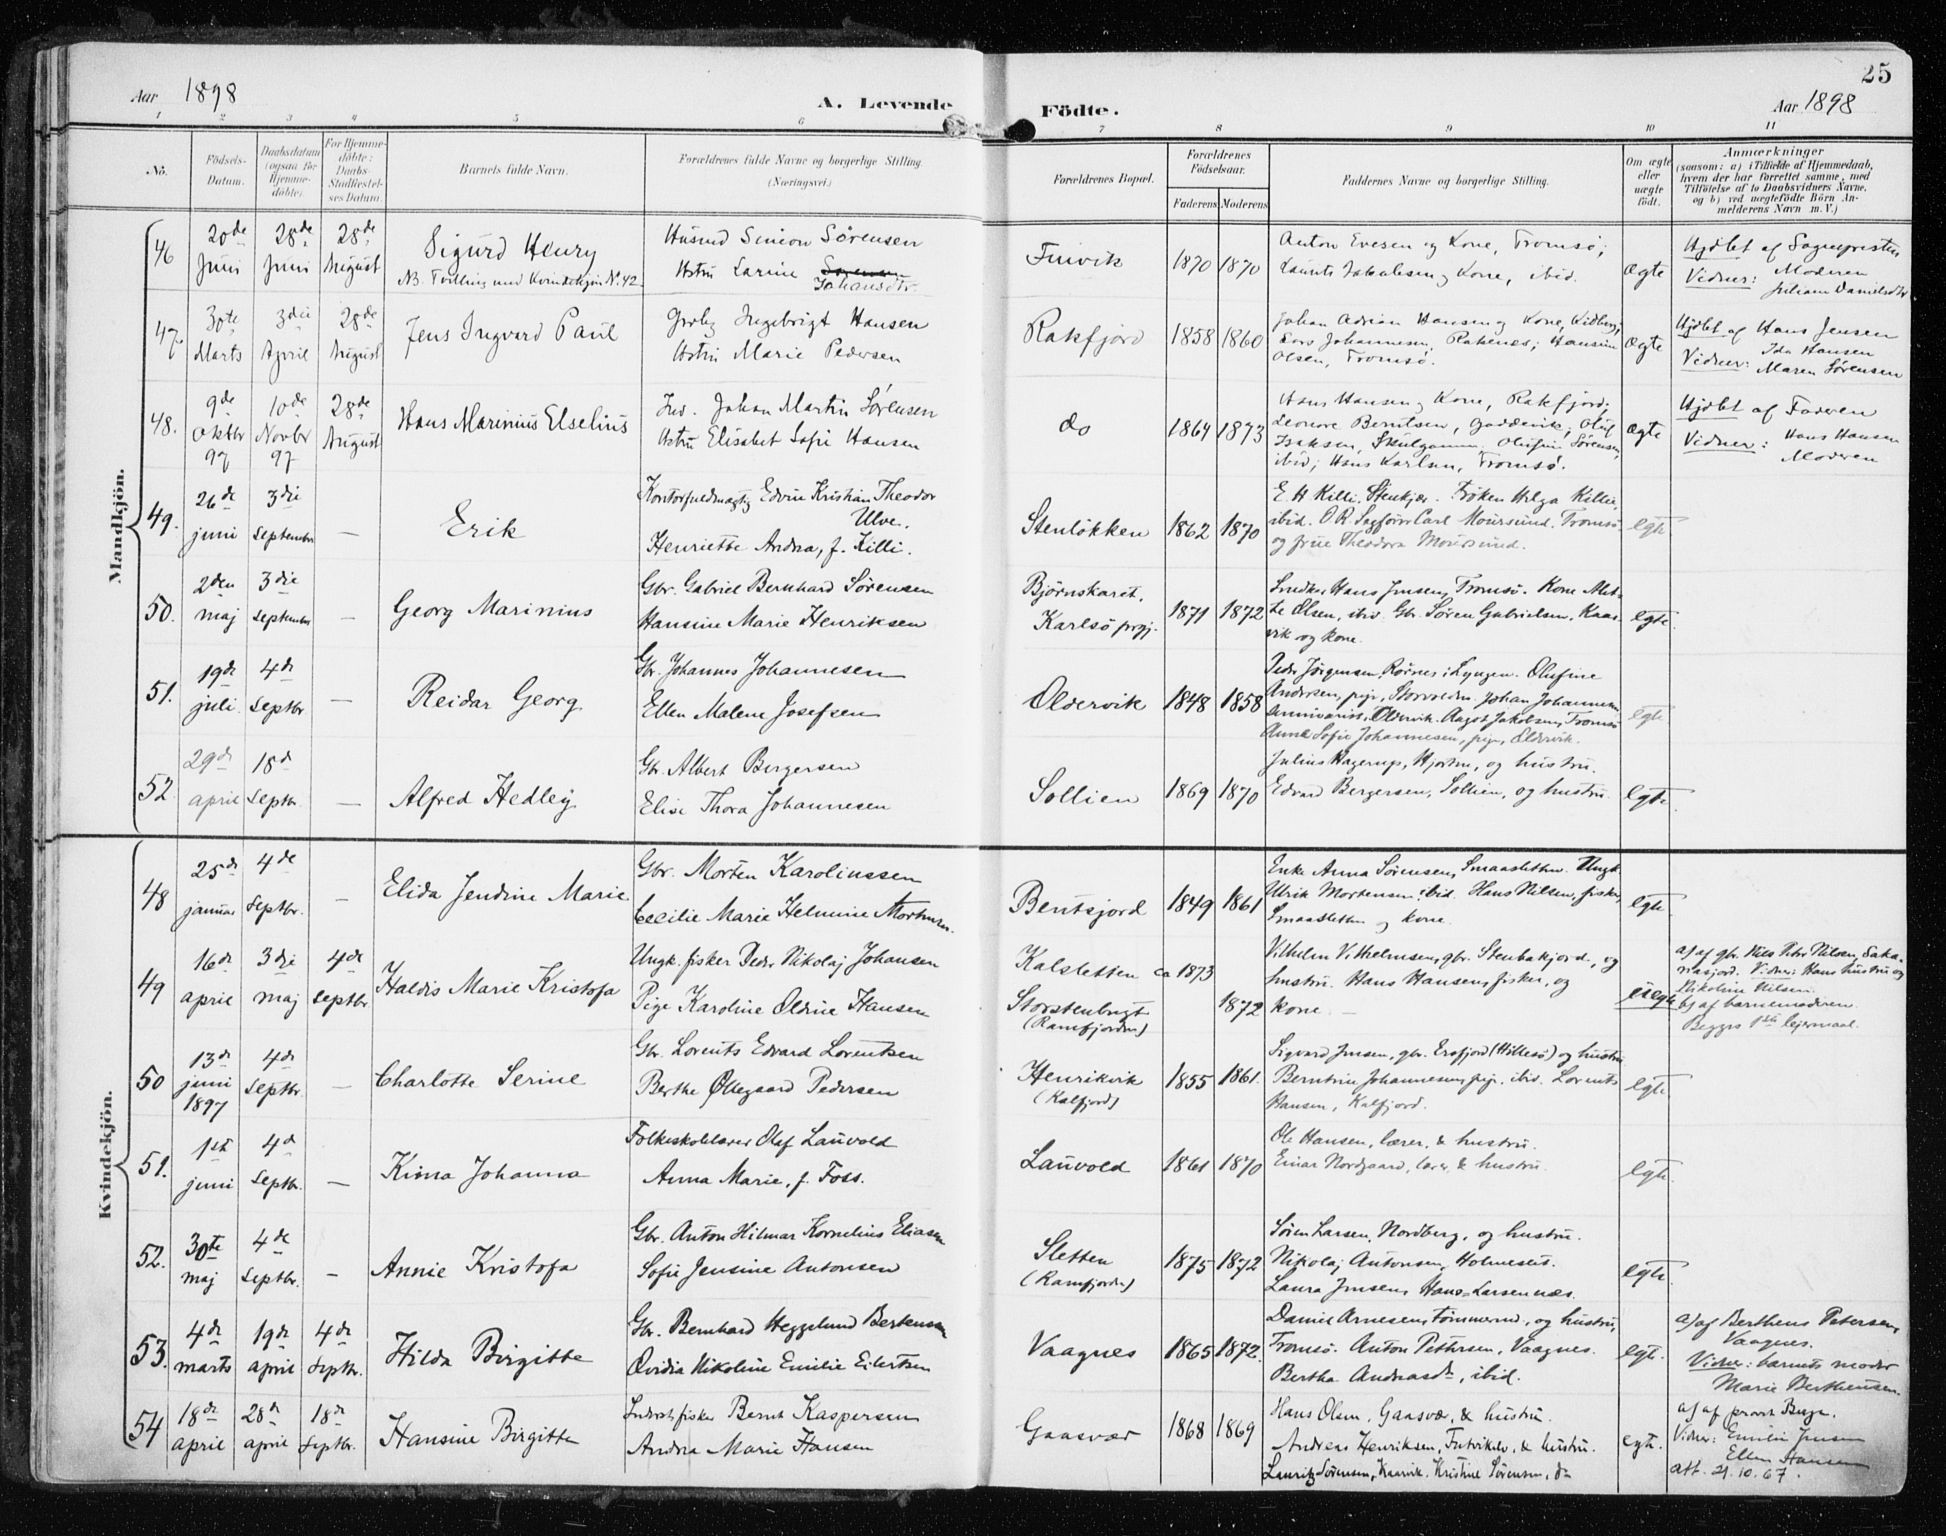 25
Aar 1898
A. Levende
Födte.
Aar 1898
1 2 3 4 5 6 7 8 9 10 11
No.
Födsels-Datum.
Daabsdatum (ogsaa for Hjemme-døbte).
For Hjemme-døbte: Daabs-Stadfæstel-ses Datum.
Barnets fulde Navn.
Forældrenes fulde Navne og borgerlige Stilling. (Næringsvei.)
Forældrenes Bopæl.
Forældrenes Födselsaar.
Faderens Moderens
Faddernes Navne og borgerlige Stilling.
Om ægte eller uægte födt.
Anmærkninger
(saasom: a) i Tilfælde af Hjemmedaab,
hvem der har forrettet samme, med
Tilföielse af to Daabsvidners Navne,
og b) ved uægtefödte Börn An-
melderens Navn m. V.)
Mandkjön.
46 20de Juni 28de Juni 28de August
Sigurd Henry
NB. Tvilling med Kvindekjøn No. 42
Husmd Simion Sørensen
Hstru Larine Johansdtr.
Finvik 1870 1870
Anton Evesen og Kone, Tromsø;
Laurits Jakobsen og Kone, ibid.
Ægte
Hjdbt af Sognepresten
Vidner: Moderen
Juliane Danielsdtr
47. 30te Marts 3die April 28de August
Jens Ingvard Paul
Grbg Ingebrigt Hansen
Hstru Marie Pedersen
Rakfjord 1858 1860
Johan Adrian Hansen og Kone, Kidberg;
Lars Johannesen, Rakenes; Hansine
Olsen, Tromsø.
Ægte
Hjdbt af Hans Jensen
Vidner: Ida Hansen
Maren Sørensen
48. 9de Oktbr 97 10de Novbr 97 28de August
Hans Marinius Elselius
Ind. Johan Martin Sørensen
Hstru Elisabet Sofie Hansen
do 1864 1873
Hans Hansen og Kone, Rakfjord;
Leonore Berntsen, Gaddevik; Oluf
Isaksen, Skulgammen, Olufine Sørensen,
ibid; Hans Karlsen, Tromsø.
Ægte
Hjdbt af Faderen
Vidner: Hans Hansen
Moderen
49. 26de juni 3die September —
Erik
Kontorfuldmægtig Edvin Kristian Theodor
Ulve.
Henriette Andrea, f. Killi.
Stenløkken 1862 1870
E. H Killi, Stenkjær. Frøken Helga Killi,
ibid. O.R. Sagfører Carl Moursund. Tromsø
og frue Theodora Moursund.
egte
50. 2den maj 3die September —
Georg Marinius
Gbr. Gabriel Bernhard Sørensen
Hansine Marie Henriksen
Bjørnskaret,
Karlsø prgj. 1871 1872
Smeds. Hans Jensen, Tromsø. Kone Met-
te Olsen, ibid. Gbr. Søren Gabrielsen, Kaar-
vik og kone.
egte.
51. 19de juli 4de Septbr —
Reidar Georg
Gbr. Johannes Johannesen
Ellen Malene Josefsen
Oldervik 1848 1858
Peder Jørgensen, Rørnes i Lyngen. Olufine
Andersen, pige, Storvolden. Johan Johannesen,
seminarist, Oldervik. Aagot Jakobsen, Tromsø
Anna Sofie Johannesen, pige, Oldervik.
egte
52. 29de april 18de Septbr. —
Alfred Hedley
Gbr. Albert Bergersen
Elise Thora Johannesen
Sollien 1869 1870
Julius Hagerup, Hjorten, og hustru.
Edvard Bergersen, Sollien, og hustru.
egte
Kvindekjön.
48 25de januar 4de Septbr. —
Elida Jendine Marie
Gbr. Morten Karolinssen
Cecilie Marie Helmine Mortensen.
Bentsjord 1849 1861
Enke Anna Sørensen, Smaasletten. Ungk.
Ulrik Mortensen ibid. Hans Nilsen, fisker,
Smaasletten og kone.
egte
49 16de april 3die maj 4de Septbr
Haldis Marie Kristofa
Ungk. fisker Peder Nikolaj Johansen
Pige Karoline Oldine Hansen
Kalsletten ca 1873
Storstenbugt
(Ramfjorden) 1872
Vilhelm Vilhelmsen, gbr. Stenbakjord, og
hustru. Hans Hansen, fisker, og
kone. —
uegte
a) af gbr. Nils Peter Nilsen, Saka-
riasjord. Vidner: Hans hustru og
Nikoline Nilsen.
b) af barnemoderen.
Begges 1ste lejermaal.
50 13de juni 1897 4de Septbr. —
Charlotte Serine
Gbr. Lorents Edvard Lorentsen
Berthe Øllegaard Pedersen
Henrikvik
(Kalfjord) 1855 1861.
Sigvard Jensen, gbr. Ersfjord (Hillesø) og hustru
Berntine Johannesen, pige. ibid. Lorents
Hansen, Kalfjord.
egte
51. 1ste juni 4de Septbr. —
Kinra Johanna
Folkeskolelærer Olaf Lauvold
Anna Marie, f. Foss.
Lauvold 1861 1870
Ole Hansen, lærer, & hustru.
Einar Nordgaard, lærer, & hustru.
egte
52. 30te maj 4de Septbr. —
Annie Kristofa
Gbr. Anton Hilmar Kornelius Eliasen
Sofie Jensine Antonsen
Sletten
(Ramfjorden) 1875 1872
Søren Larsen, Nordberg, og hustru.
Nikolaj Antonsen, Holmeset.
Laura Jensen, Hans-Larsennæs.
egte
53. 4de marts 19de april 4de Septbr.
Hilda Birgitte
Gbr. Bernhard Heggelund Bertheusen
Ovidia Nikoline Emilie Eilertsen
Vaagnes 1865 1872.
Daniel Arnesen, tømmermd., og hustru,
Tromsø. Anton Pettersen, Vaagnes.
Bertha Andreasdr, ibid.
egte.
a) af Bertheus Petersen,
Vaagnes.
Vidner: barnets moder
Marie Bertheusen.
54 18de april 28de april 18de Septbr.
Hansine Birgitte
Inderst, fisker Bernt Kaspersen
Andrea Marie Hansen
Gaasvær 1868 1869
Hans Olsen, Gaasvær, & hustru.
Andreas Henriksen, Futrikelv, & hustru.
Lauritz Sørensen, Kaarvik. Kristine Sørensen, do
egte.
a) af provst Berge.
Vidner: Emilie Jensen
Ellen Hansen
Att. 21.10.67.